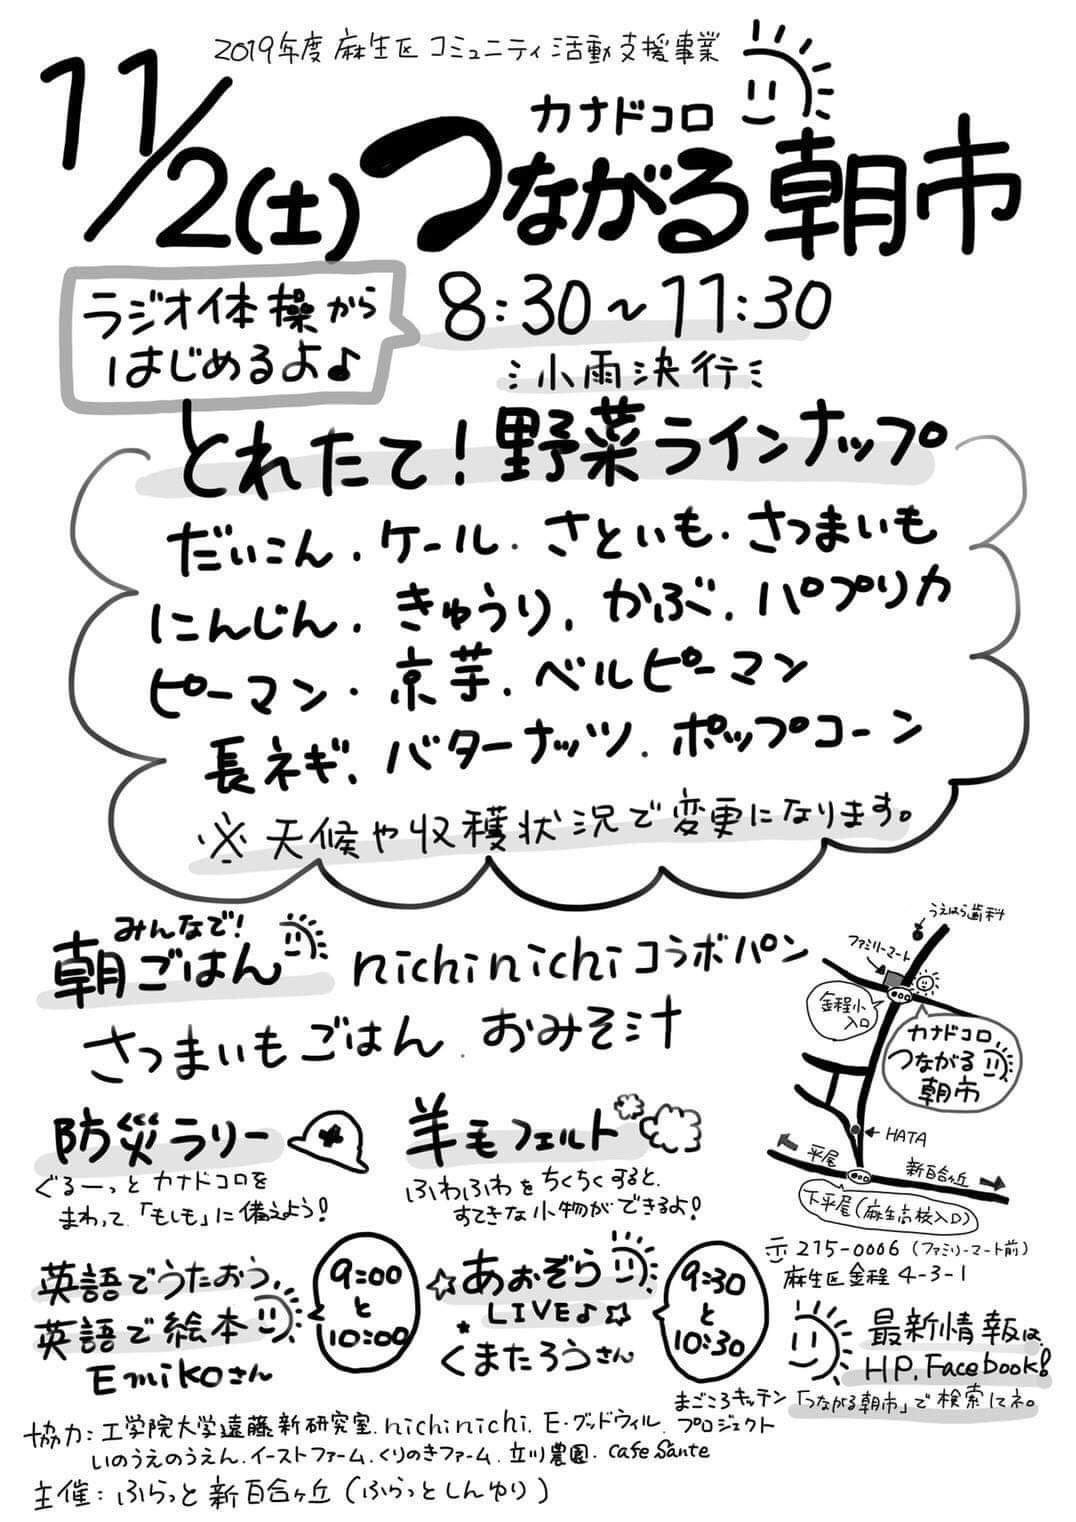 2019年度 麻生区 コミュニティ活動支援事業
11/2(土)
カナドコロ
つながる朝市
ラジオ体操から
はじめるよ♪
8:30～11:30
小雨決行
とれたて!野菜ラインナップ
だいこん.ケール.さといも.さつまいも
にんじん.きゅうり.かぶ.パプリカ
ピーマン・京芋.ベルピーマン
長ネギ、バターナッツ.ポップコーン
※天候や収穫状況で変更になります。
みんなで!
朝ごはん
nichinichiコラボパン
さつまいもごはん.おみそ汁
うえはら歯科
ファミリーマート
金程小
入口
カナドコロ
つながる
朝市
HATA
平尾
新百合ヶ丘
下平尾(麻生高校入口)
防災ラリー
ぐるーっとカナドコロを
まわって「もしも」に備えよう!
羊毛フェルト
ふわふわをちくちくすると、
すてきな小物ができるよ!
英語でうたおう、
英語で絵本
Emikoさん
9:00
と
10:00
☆あおぞら
LIVE♪☆
くまたろうさん
9:30
と
10:30
215-0006 (ファミリーマート前)
麻生区金程4-3-1
最新情報は、
HP,Facebook!
「つながる朝市」で検索してネ。
協力:工学院大学遠藤新研究室.nichinichi.E・グッドウィル.まごころキッチンプロジェクト
いのうえのうえん.イーストファーム.くりのきファーム.立川農園.cafe Sante
主催:ふらっと新百合ヶ丘(ふらっとしんゆり)